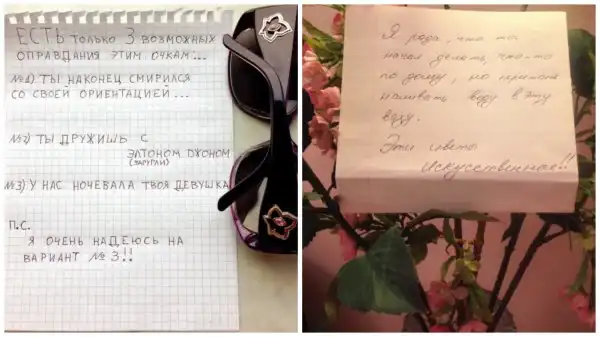 ЕСТЬ ТОЛЬКО 3 ВОЗМОЖНЫХ
ОПРАВДАНИЯ ЭТИМ ОЧКАМ...
№1) ТЫ НАКОНЕЦ СМИРИЛСЯ
СО СВОЕЙ ОРИЕНТАЦИЕЙ...
№2) ТЫ ДРУЖИШЬ С
ЭЛТОНОМ ДЖОНОМ
(ЗАГУГЛИ)
№3) У НАС НОЧЕВАЛА ТВОЯ ДЕВУШКА
П.С.
Я ОЧЕНЬ НАДЕЮСЬ НА
ВАРИАНТ № 3!!
Я рада, что ты
начал делать что-то
по дому, но перестань
наливать воду в эту
вазу.
Эти цветы
искусственные!!